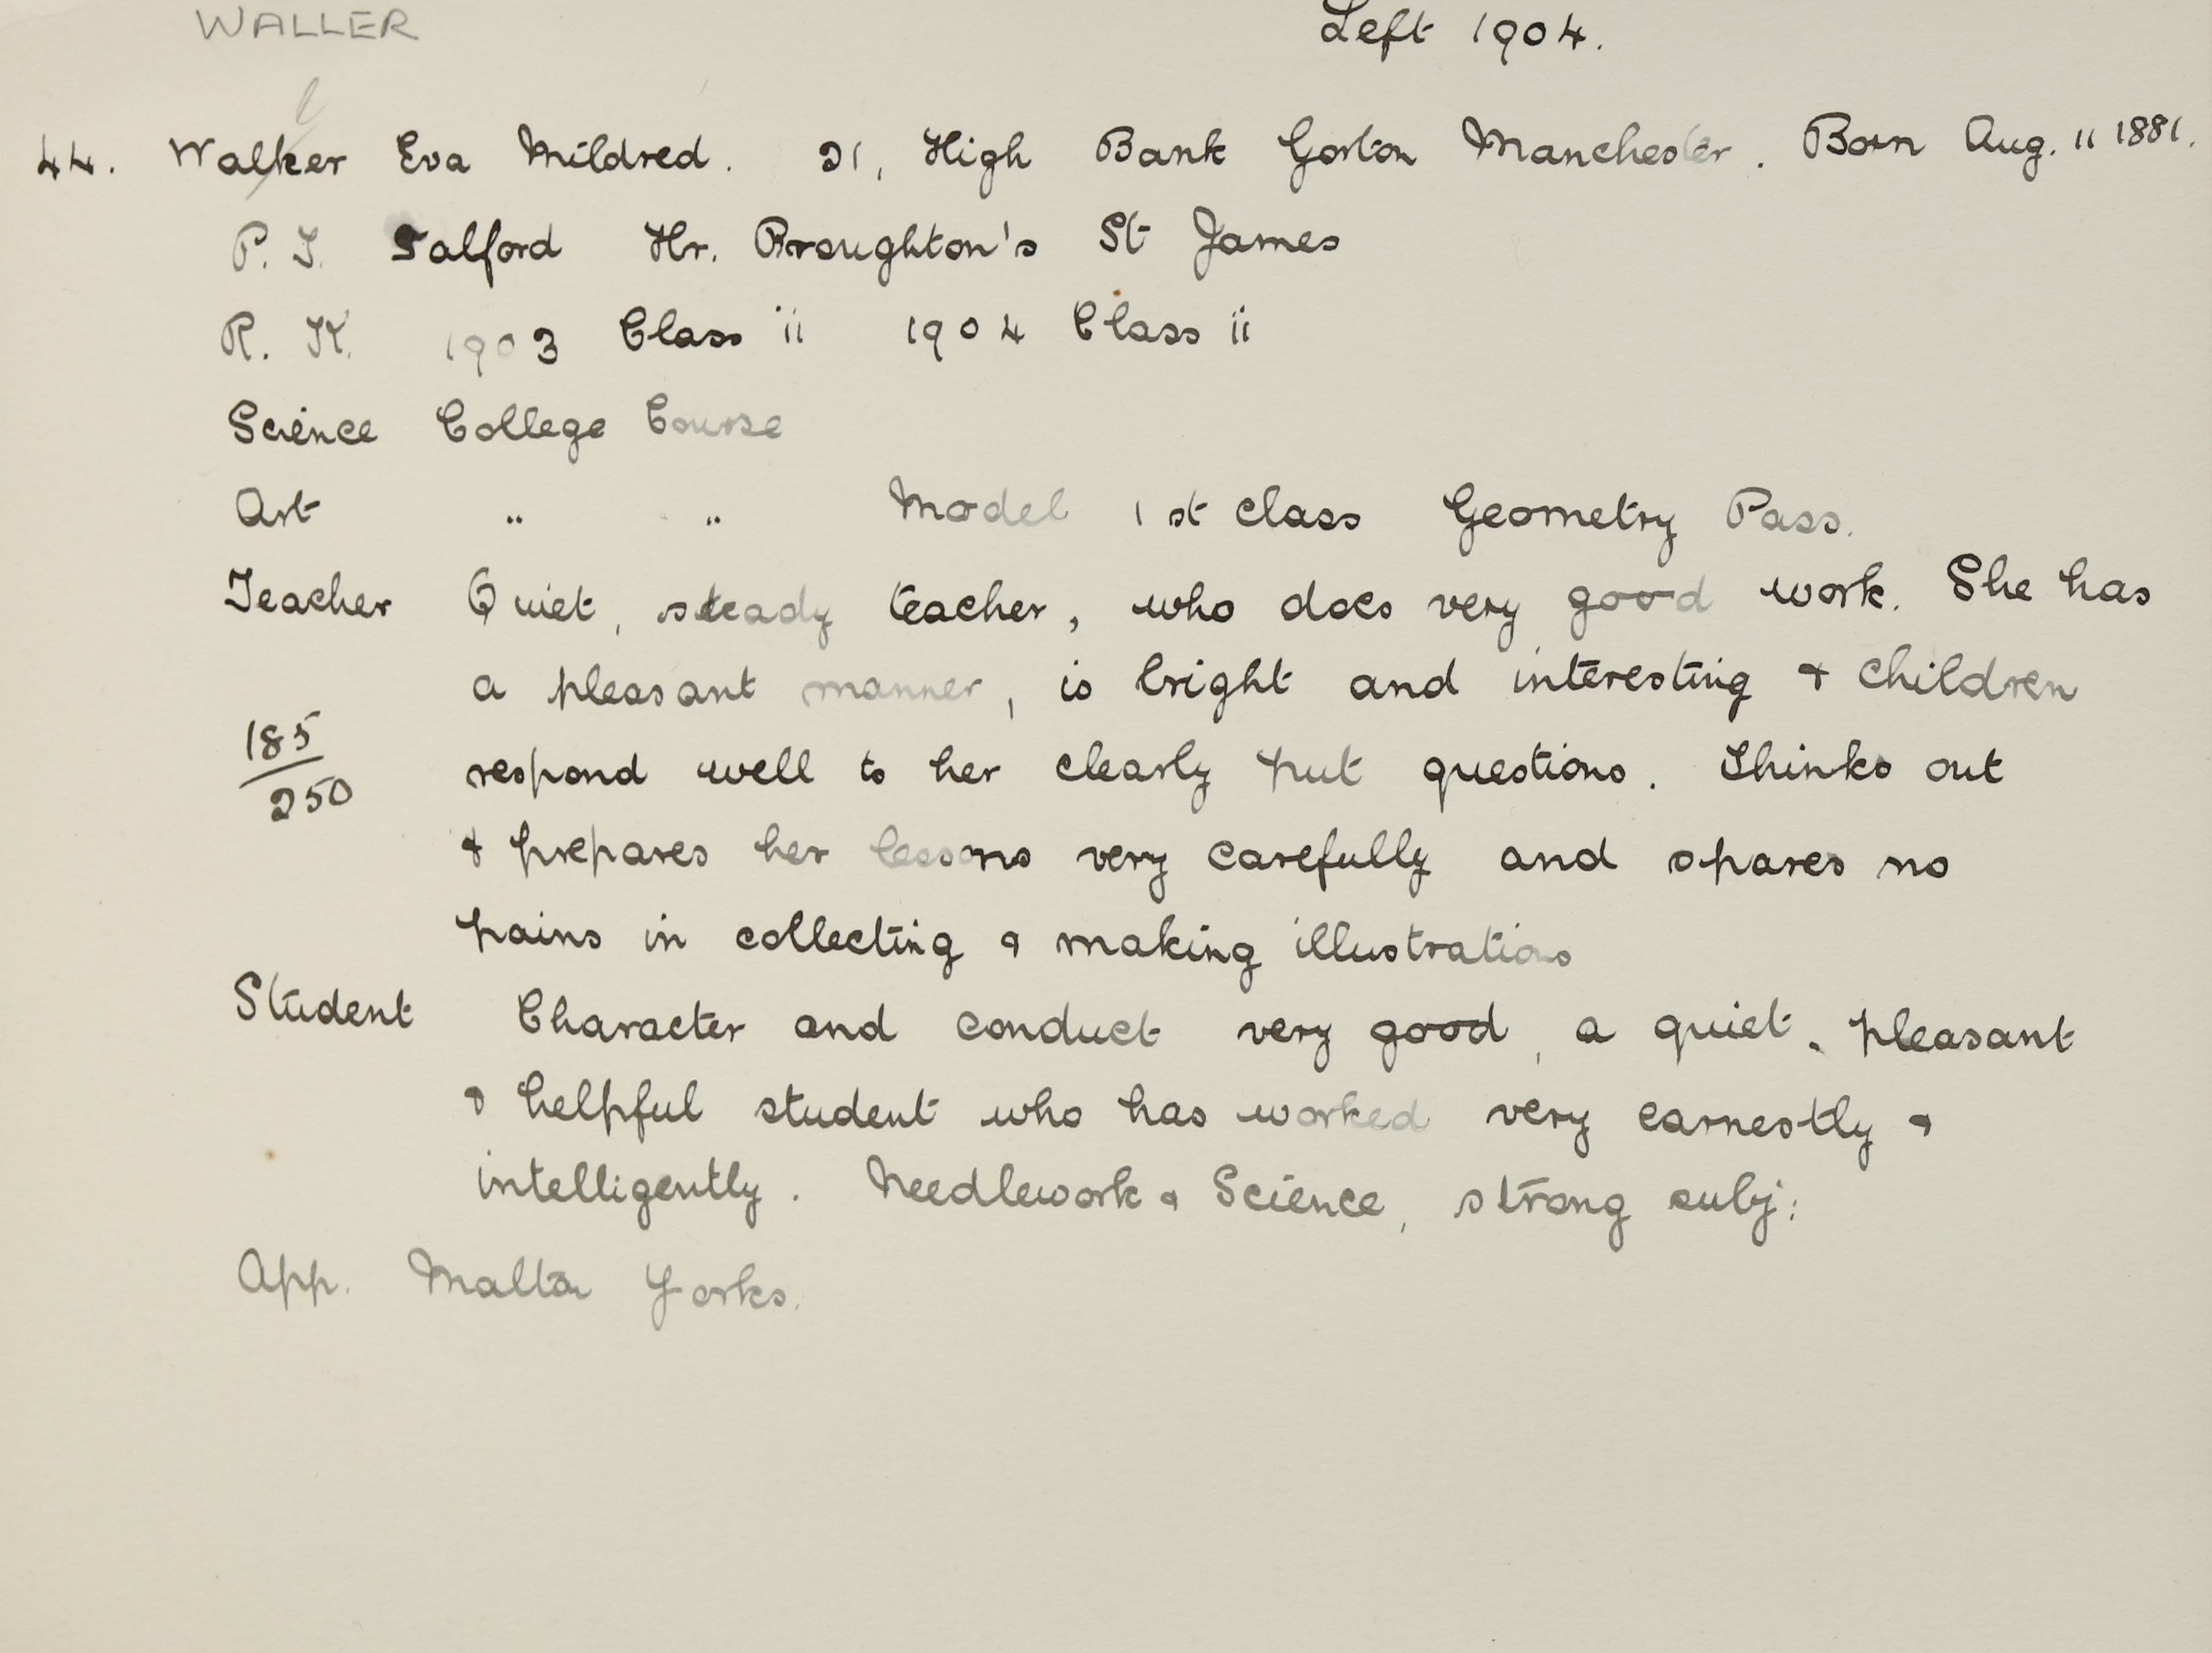 WALLER
Left 1904.
l
44. Walker Eva Mildred. 21, High Bank Gorton Manchester. Born Aug. 11 1881.
P. T. Salford Hr. Broughton's St James
R. K. 1903 Class ii 1904 Class ii
Science College Course
Art " " Model 1st class Geometry Pass.
Teacher Quiet, steady teacher, who does very good work. She has
a pleasant manner, is bright and interesting & children
185/250 respond well to her clearly put questions. Thinks out
& prepares her lessons very carefully and spares no
pains in collecting & making illustrations
Student Character and conduct very good, a quiet, pleasant
& helpful student who has worked very earnestly &
intelligently. Needlework & Science, strong subj:
App. Yorks.